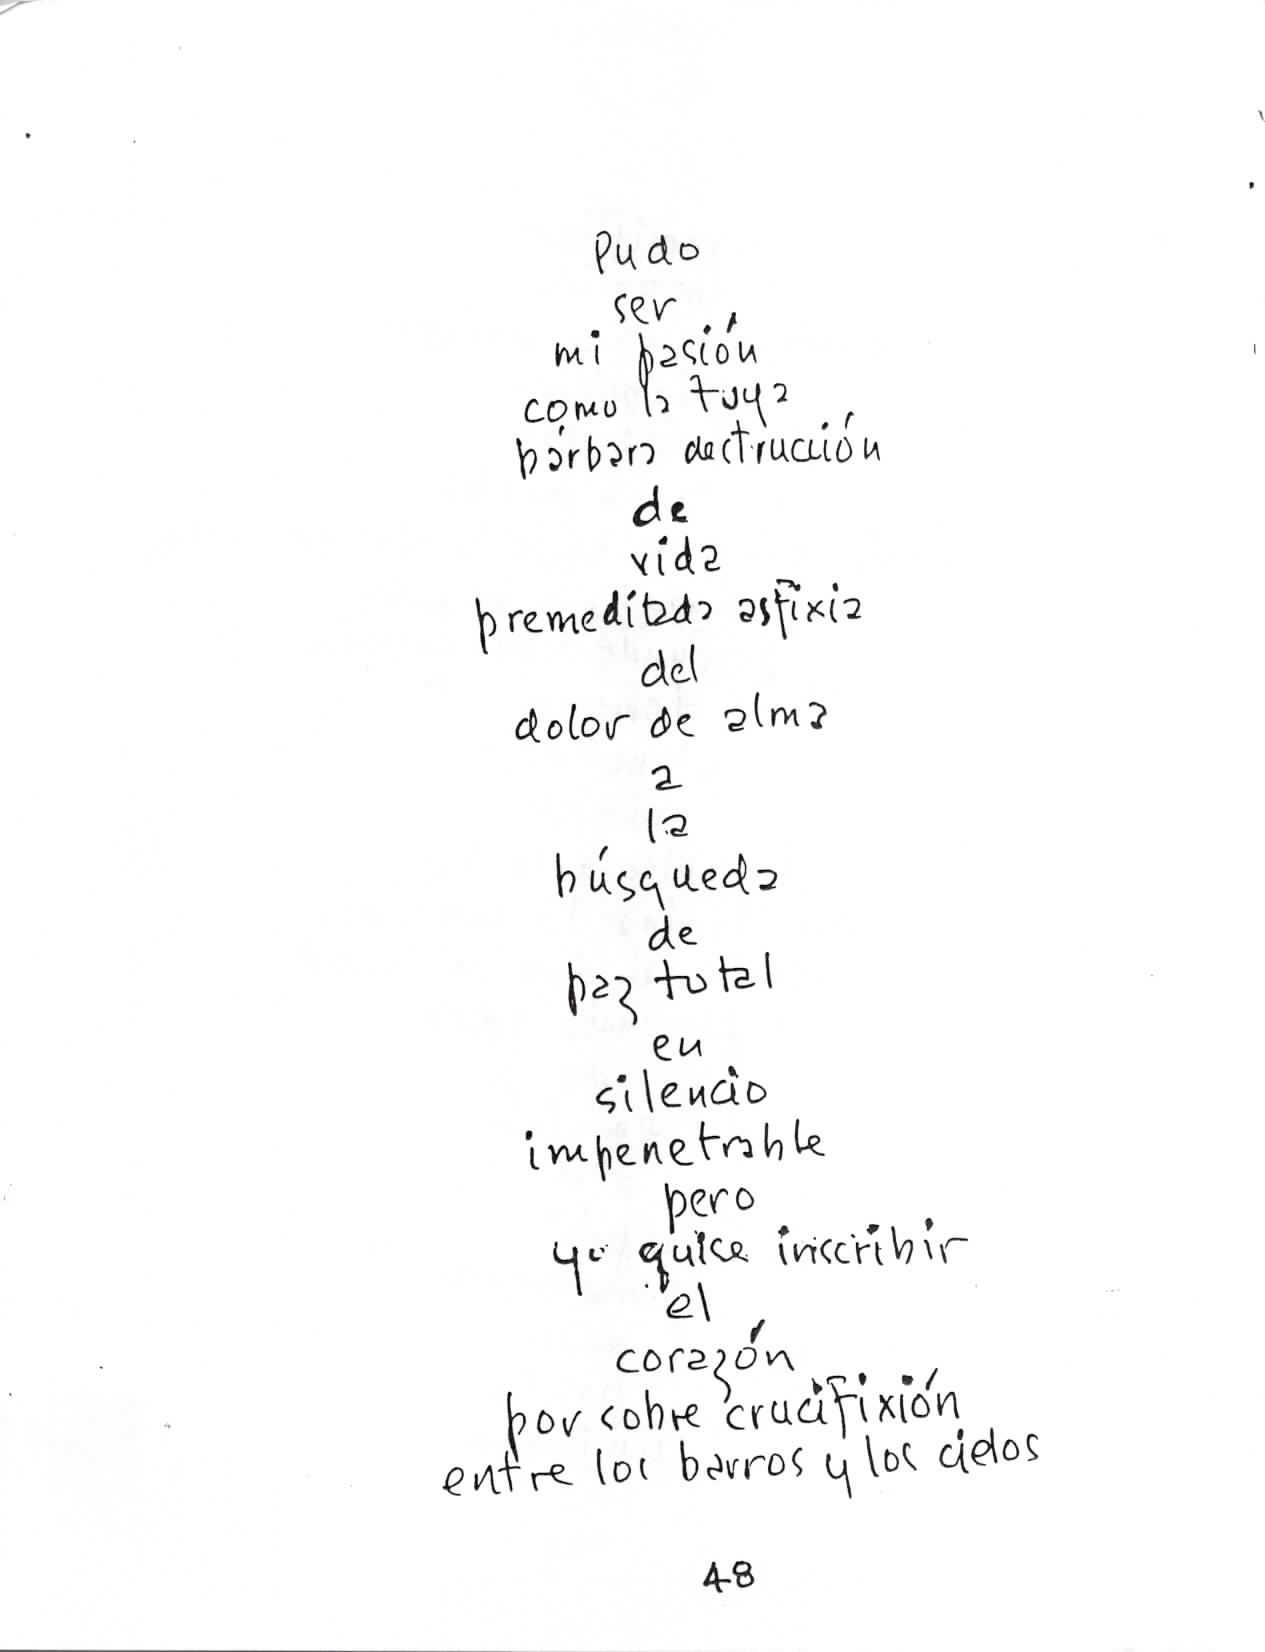 Pudo
ser
mi pasión
como la tuya
bárbara destrucción
de
vida
premeditada asfixia
del
dolor de alma
a
la
búsqueda
de
paz total
en
silencio
impenetrable
pero
yo quise inscribir
el
corazón
por sobre crucifixión
entre los barros y los cielos
48